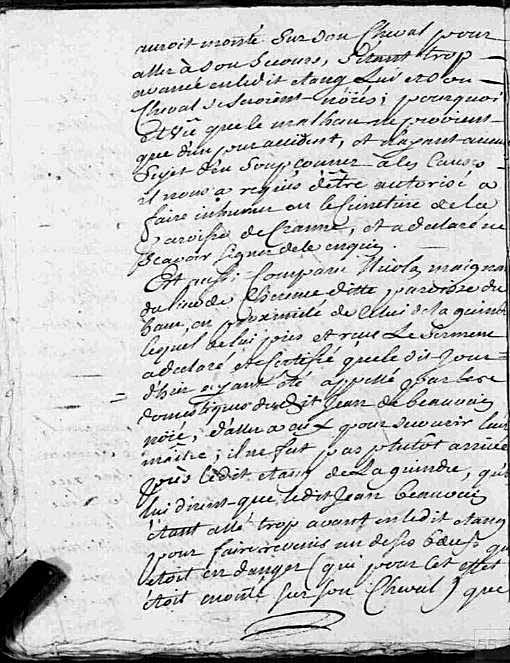 auroit monté sur son Cheval pour
aller à son secours, s'étant trop
avancé en ledit etang Lui et son
Cheval se seroient nöiés; pourquoi
et vû que le malheur ne provient
que d'un pur accident, et n'ayant aucun
sujet d'en soupçonner a les causes
il nous a requis d'être autorisé a
faire inhumer en le Cimetiere de la
Paroisse de, et a declaré ne
scavoir signer de ce enquis.
Est aussi Comparu Nicolas
du lieu de ditte paroisse de
en proximité de Celui de la quindre
lequel de lui pris et recu Le serment
a declaré et certifié que le dit jour
d'hier ayant été appellé par les
domestiques dudit Jean de beauvais
nöié, d'aller a eux pour secourir leur
maître; il ne fut pas plutôt arrivé
près ledit etang de La quindre, qu'ils
lui dirent que ledit Jean beauvais
étant allé trop avant en ledit etang
pour faire revenir un de ses bœufs qui
etoit en danger (qui pour cet effet
étoit monté sur son Cheval) que